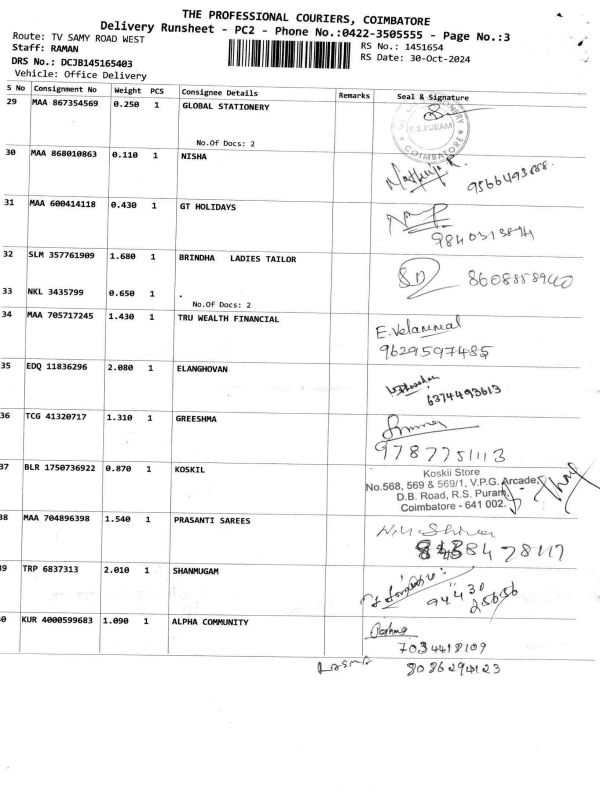 THE PROFESSIONAL COURIERS, COIMBATORE
Delivery Runsheet - PC2 - Phone No.:0422-3505555 - Page No.:3
Route: TV SAMY ROAD WEST
RS No.: 1451654
Staff: RAMAN
RS Date: 30-Oct-2024
DRS No.: DCJB145165403
Vehicle: Office Delivery
S No Consignment No Weight PCS Consignee Details Remarks Seal & Signature
29 MAA 867354569 0.250 1 GLOBAL STATIONERY
R.S.PURAM
COIMBATORE
No.Of Docs: 2
30 MAA 868010863 0.110 1 NISHA
31 MAA 600414118 0.430 1 GT HOLIDAYS
32 SLM 357761909 1.680 1 BRINDHA LADIES TAILOR
33 NKL 3435799 0.650 1 .
No.Of Docs: 2
34 MAA 705717245 1.430 1 TRU WEALTH FINANCIAL
9629597485
35 EDQ 11836296 2.080 1 ELANGHOVAN
6374493613
36 TCG 41320717 1.310 1 GREESHMA
9787751113
37 BLR 1750736922 0.870 1 KOSKIL
Koskii Store
No.568, 569 & 569/1, V.P.G. Arcade,
D.B. Road, R.S. Puram,
Coimbatore - 641 002.
38 MAA 704896398 1.540 1 PRASANTI SAREES
39 TRP 6837313 2.010 1 SHANMUGAM
94430
25656
40 KUR 4000599683 1.090 1 ALPHA COMMUNITY
7034418109
8086294123